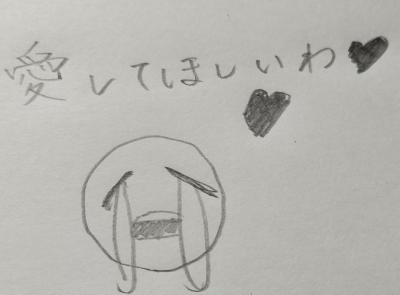 愛してほしいわ♥